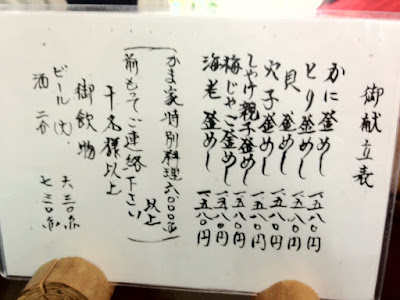 御献立表
かに釜めし 一、五八〇円
とり釜めし 一、五八〇円
貝釜めし 一、五八〇円
穴子釜めし 一、五八〇円
しゃけ親子釜めし 一、五八〇円
梅じゃこ釜めし 一、五八〇円
海老釜めし 一、五八〇円
かま家特別料理六〇〇〇円以上
前もってご連絡下さい
十名様以上
御飲物
ビール(大) 六三〇円
酒 二合 七三〇円